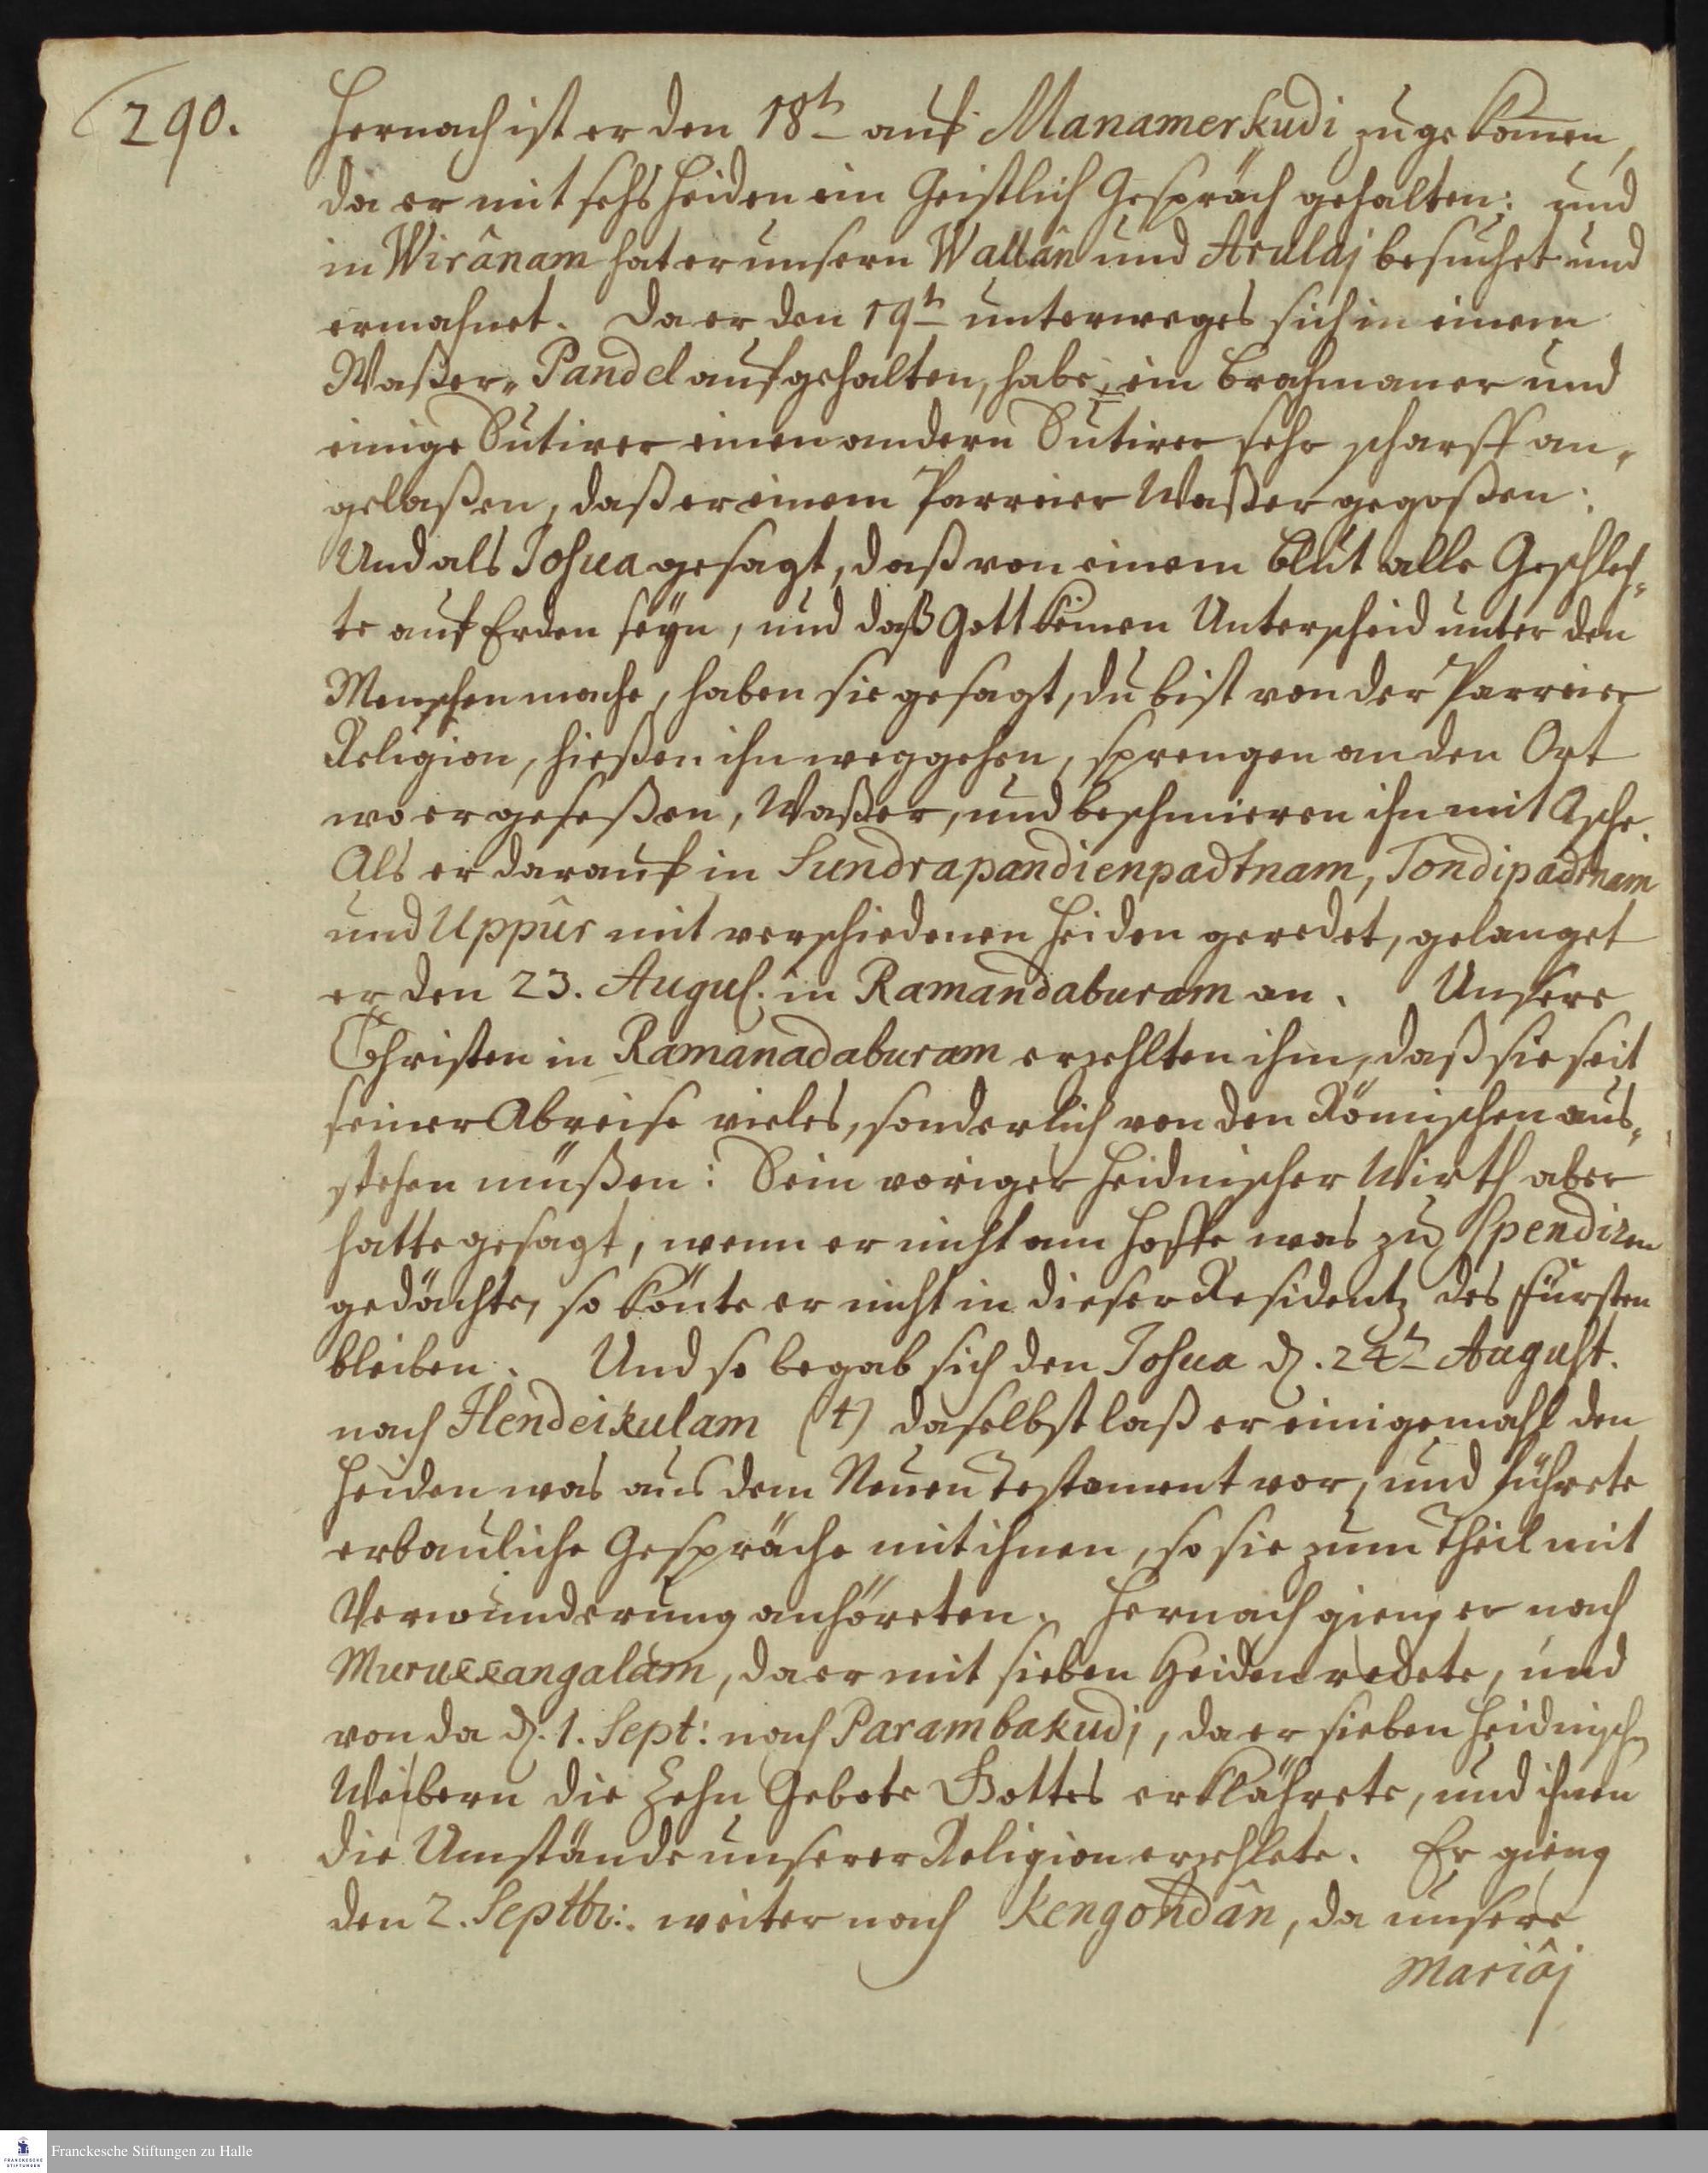 290.
Hernach ist er den 18t auf Manamerkudi zugekom̄en,
da er mit sechs Heiden ein Geistlich Gespräch gehalten: und
in Wirânam hat er unsern Wattân und Arulaj besuchet und
ermahnet. Da er den 19t unterweges sich in einem
Waßer-Pandel aufgehalten, habe ein Brahmaner und
einige Sutirer einen andern Sutirer sehr scharff an-
gelaßen, daß er einem Parreier Waßer gegoßen:
Und als Josua gesagt, daß von einem Blut alle Geschlech-
te auf Erden seyn, und daß Gott keinen Unterscheid unter den
Menschen mache, haben sie gesagt, du bist von der Parreier
Religion, hießen ihn weggehen, sprengen an den Ort
wo er geseßen, Waßer, und beschmieren ihn mit Asche.
Als er darauf in Sundrapandienpadtnam, Tondipadtnam
und Uppûr mit verschiedenen Heiden geredet, gelanget
er den 23. Augus. in Ramandaburam an. Unsere
Christen in Ramanadaburam erzehlten ihm, daß sie seit
seiner Abreise vieles, sonderlich von den Römischen aus-
stehen müßen: Sein voriger Heidnischer Wirth aber
hatte gesagt, wenn er nicht am Hoffe was zu spendiren
gedächte, so könte er nicht in dieser Residentz des Fürsten
bleiben. Und so begab sich den Josua d. 24t August.
nach Hendeikulam (†) daselbst laß er einigemahl den
Heiden was aus dem Neuen Testament vor, und führete
erbauliche Gespräche mit ihnen, so sie zum Theil mit
Verwunderung anhöreten. Hernach gieng er nach
Muruxxangalam, da er mit sieben Heiden redete, und
von da d. 1. Sept: nach Parambakudi, da er sieben Heidnischen
Weibern die Zehn Gebote Gottes erklährete, und ihnen
die Umstände unserer Religion erzehlete. Er gieng
den 2. Septbr: weiter nach Kengondân, da unsere
Mariâj
Franckesche Stiftungen zu Halle